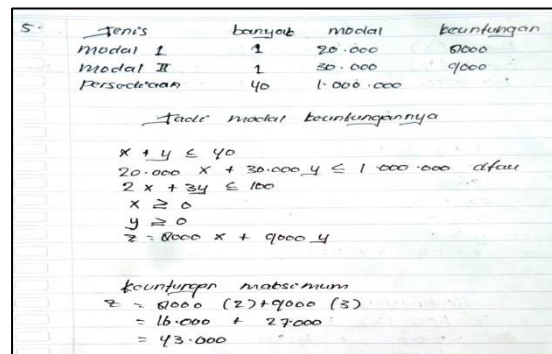 5. Jenis banyak modal keuntungan
modal I 1 20.000 8000
modal II 1 30.000 9000
persediaan 40 1.000.000
Jadi modal keuntungannya
x + y ≤ 40
20.000 x + 30.000 y ≤ 1.000.000 atau
2 x + 3y ≤ 100
x ≥ 0
y ≥ 0
z = 8000 x + 9000 y
keuntungan maksimum
z = 8000 (2) + 9000 (3)
= 16.000 + 27.000
= 43.000